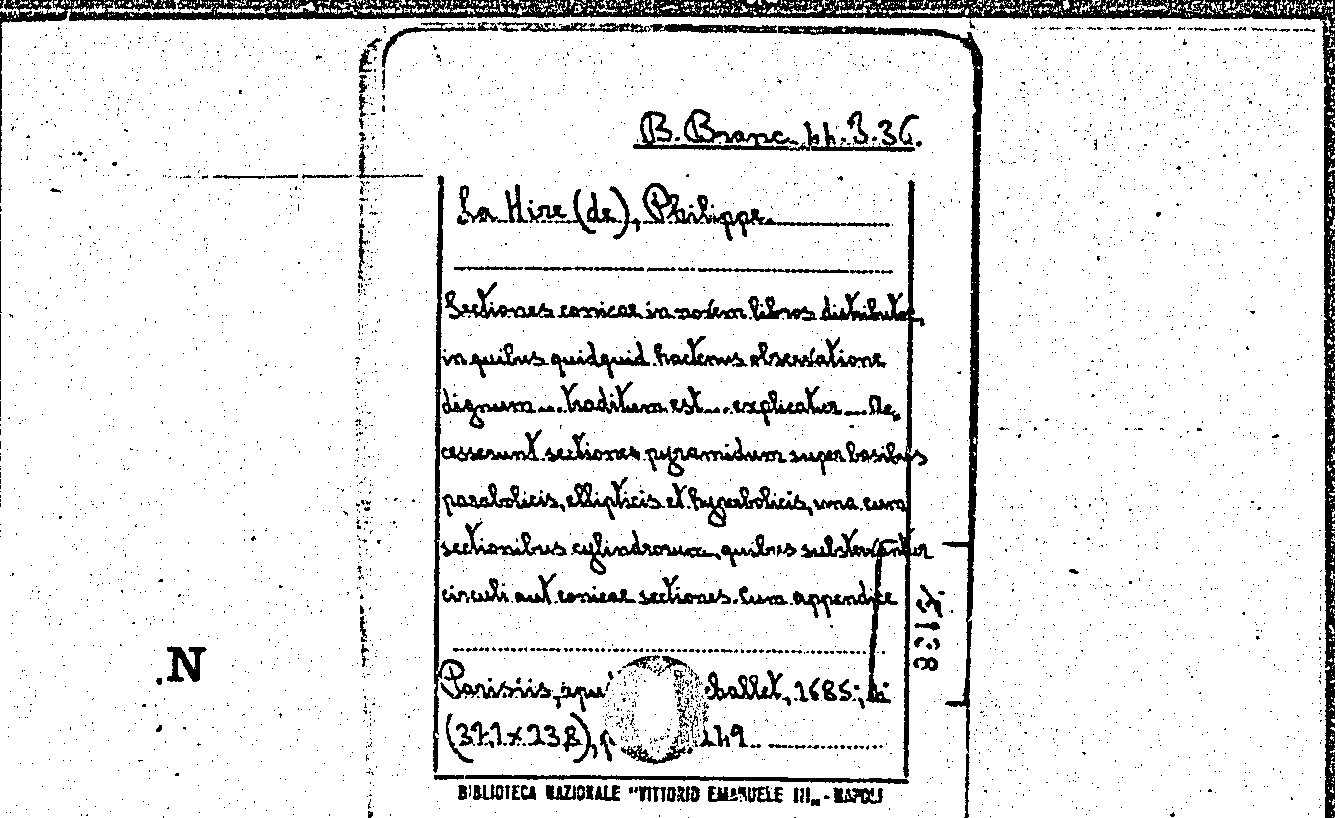 B. Branc. 44.3.36.
La Hire (de), Philippe
Sectiones conicae in novem libros distributae,
in quibus quidquid hactenus observatione
dignum... traditum est... explicatur... Ac,
cesserunt sectiones pyramidum super basibus
parabolicis, ellipticis et hyperbolicis, una cum
sectionibus cylindrorum, quibus substernuntur
circuli aut conicae sectiones. Cum appendice
N
Parisiis, 1685;
249
BIBLIOTECA NAZIONALE "VITTORIO EMANUELE III„ - NAPOLI